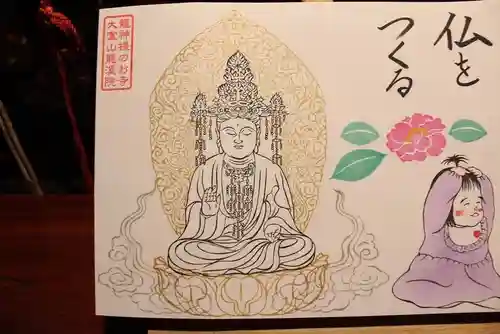 仏を
つくる
龍神様のお寺
大雲山龍渓院